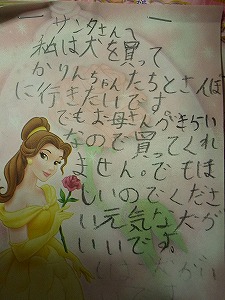 サンタさんへ
私は犬を買って
かりんちゃんたちとさんぽ
に行きたいです
でもお母さんがきらい
なので買ってくれ
ません。でもほ
しいのでくださ
い元気な犬が
いいです。